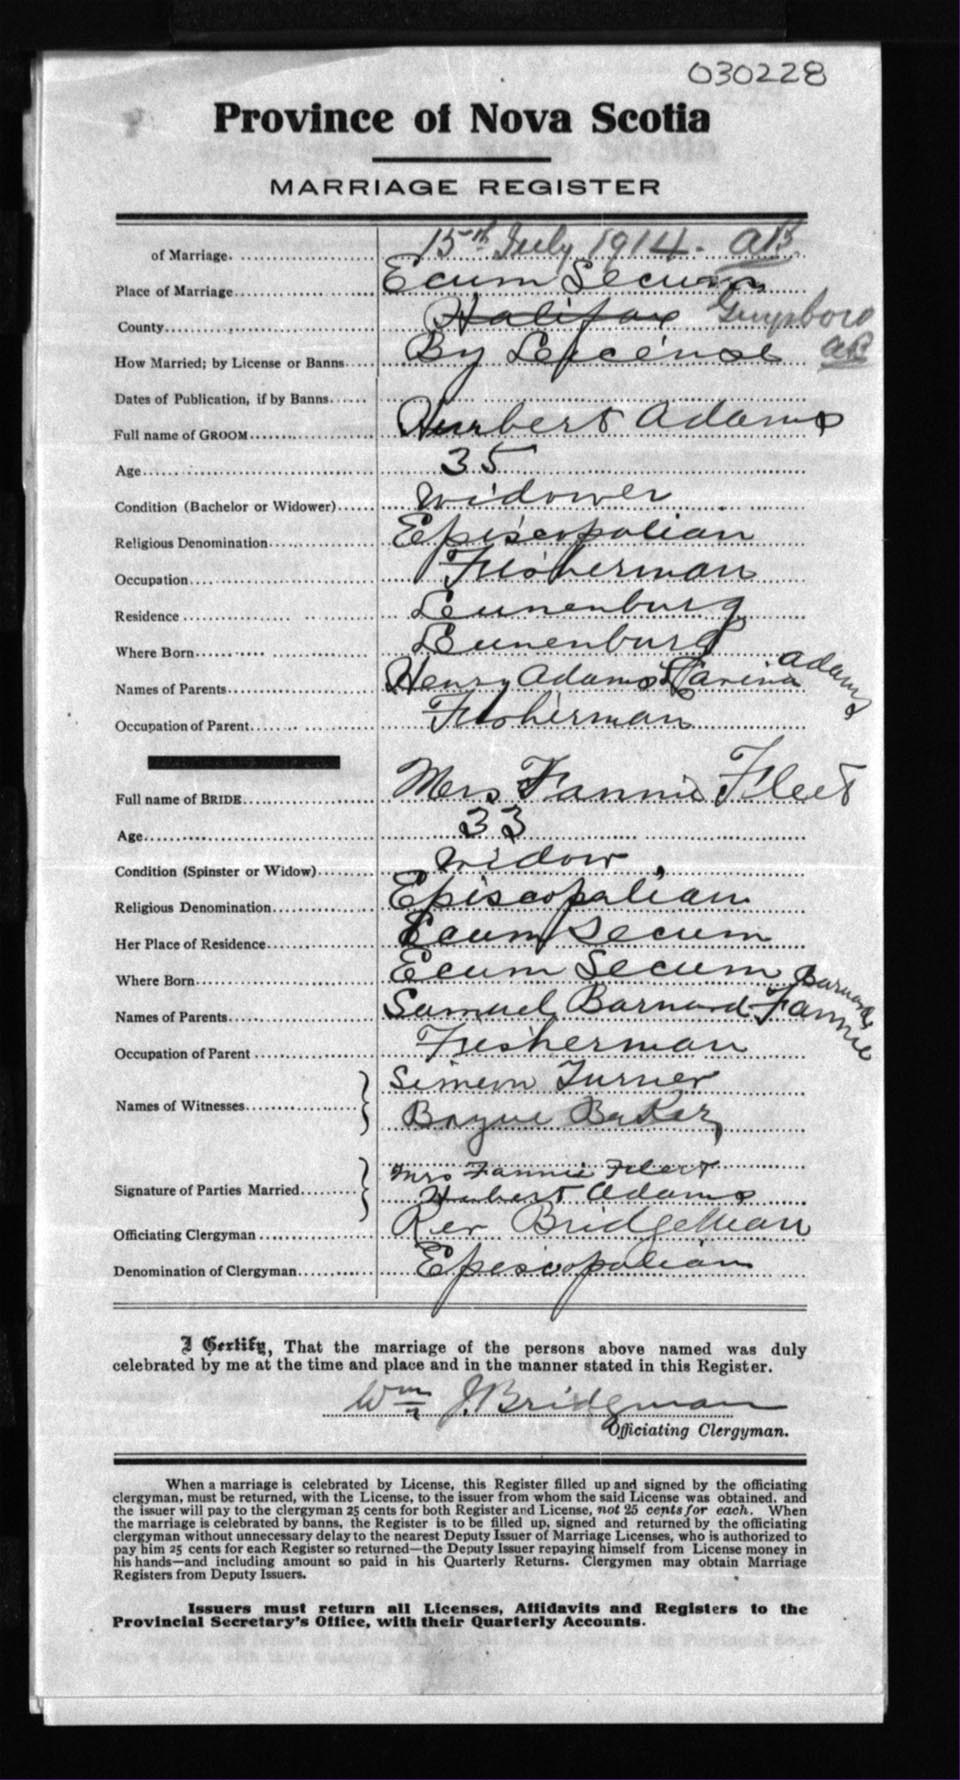 030228
Province of Nova Scotia
MARRIAGE REGISTER
of Marriage. 15th July 1914. AB
Place of Marriage Ecum Secum
County Halifax Guysboro
How Married; by License or Banns By Leicense AB
Dates of Publication, if by Banns
Full name of GROOM Hurbert Adams
Age 35
Condition (Bachelor or Widower) Widower
Religious Denomination Episcopalian
Occupation Fisherman
Residence Leunenburg
Where Born Leunenburg
Names of Parents Henry Adams Adams
Occupation of Parent Fisherman
Full name of BRIDE Mrs Fannie Fleet
Age 33
Condition (Spinster or Widow) Widow
Religious Denomination Episcopalian
Her Place of Residence Ecum Secum
Where Born Ecum Secum
Names of Parents Samuel Barnard Fannie Barnard
Occupation of Parent Fisherman
Names of Witnesses Simeon Turner
Baker
Signature of Parties Married Mrs Fannie Fleet
Hubert Adams
Officiating Clergyman Rev Bridgeman
Denomination of Clergyman Episcopalian
I Certify, That the marriage of the persons above named was duly
celebrated by me at the time and place and in the manner stated in this Register.
Wm J. Bridgman
Officiating Clergyman.
When a marriage is celebrated by License, this Register filled up and signed by the officiating
clergyman, must be returned, with the License, to the issuer from whom the said License was obtained. and
the issuer will pay to the clergyman 25 cents for both Register and License, not 25 cents for each. When
the marriage is celebrated by banns, the Register is to be filled up, signed and returned by the officiating
clergyman without unnecessary delay to the nearest Deputy Issuer of Marriage Licenses, who is authorized to
pay him 25 cents for each Register so returned—the Deputy Issuer repaying himself from License money in
his hands—and including amount so paid in his Quarterly Returns. Clergymen may obtain Marriage
Registers from Deputy Issuers.
Issuers must return all Licenses, Affidavits and Registers to the
Provincial Secretary's Office, with their Quarterly Accounts.